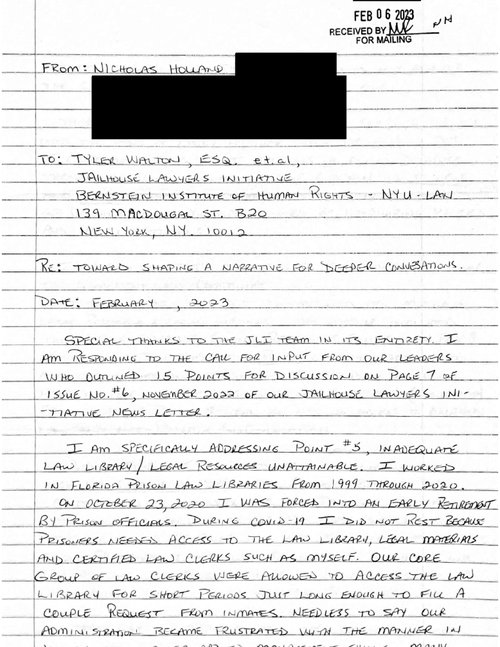 FEB 06 2023
RECEIVED BY
FOR MAILING
FROM: NICHOLAS HOLLAND
TO: TYLER WALTON, ESQ. et.al,
JAILHOUSE LAWYERS INITIATIVE
BERNSTEIN INSTITUTE OF HUMAN RIGHTS - NYU - LAW
139 MACDOUGAL ST. B20
NEW YORK, NY. 10012
RE: TOWARD SHAPING A NARRATIVE FOR DEEPER CONVERSATIONS.
DATE: FEBRUARY , 2023
SPECIAL THANKS TO THE JLI TEAM IN ITS ENTIRETY. I
AM RESPONDING TO THE CALL FOR INPUT FROM OUR LEADERS
WHO OUTLINED 15 POINTS FOR DISCUSSION ON PAGE 7 OF
ISSUE NO. #6, NOVEMBER 2022 OF OUR JAILHOUSE LAWYERS INI-
-TIATIVE NEWS LETTER.
I AM SPECIFICALLY ADDRESSING POINT #5, INADEQUATE
LAW LIBRARY/LEGAL RESOURCES UNATTAINABLE. I WORKED
IN FLORIDA PRISON LAW LIBRARIES FROM 1999 THROUGH 2020.
ON OCTOBER 23, 2020 I WAS FORCED INTO AN EARLY RETIREMENT
BY PRISON OFFICIALS. DURING COVID-19 I DID NOT REST BECAUSE
PRISONERS NEEDED ACCESS TO THE LAW LIBRARY, LEGAL MATERIALS
AND CERTIFIED LAW CLERKS SUCH AS MYSELF. OUR CORE
GROUP OF LAW CLERKS WERE ALLOWED TO ACCESS THE LAW
LIBRARY FOR SHORT PERIODS JUST LONG ENOUGH TO FILL A
COUPLE REQUEST FROM INMATES. NEEDLESS TO SAY OUR
ADMINISTRATION BECAME FRUSTRATED WITH THE MANNER IN